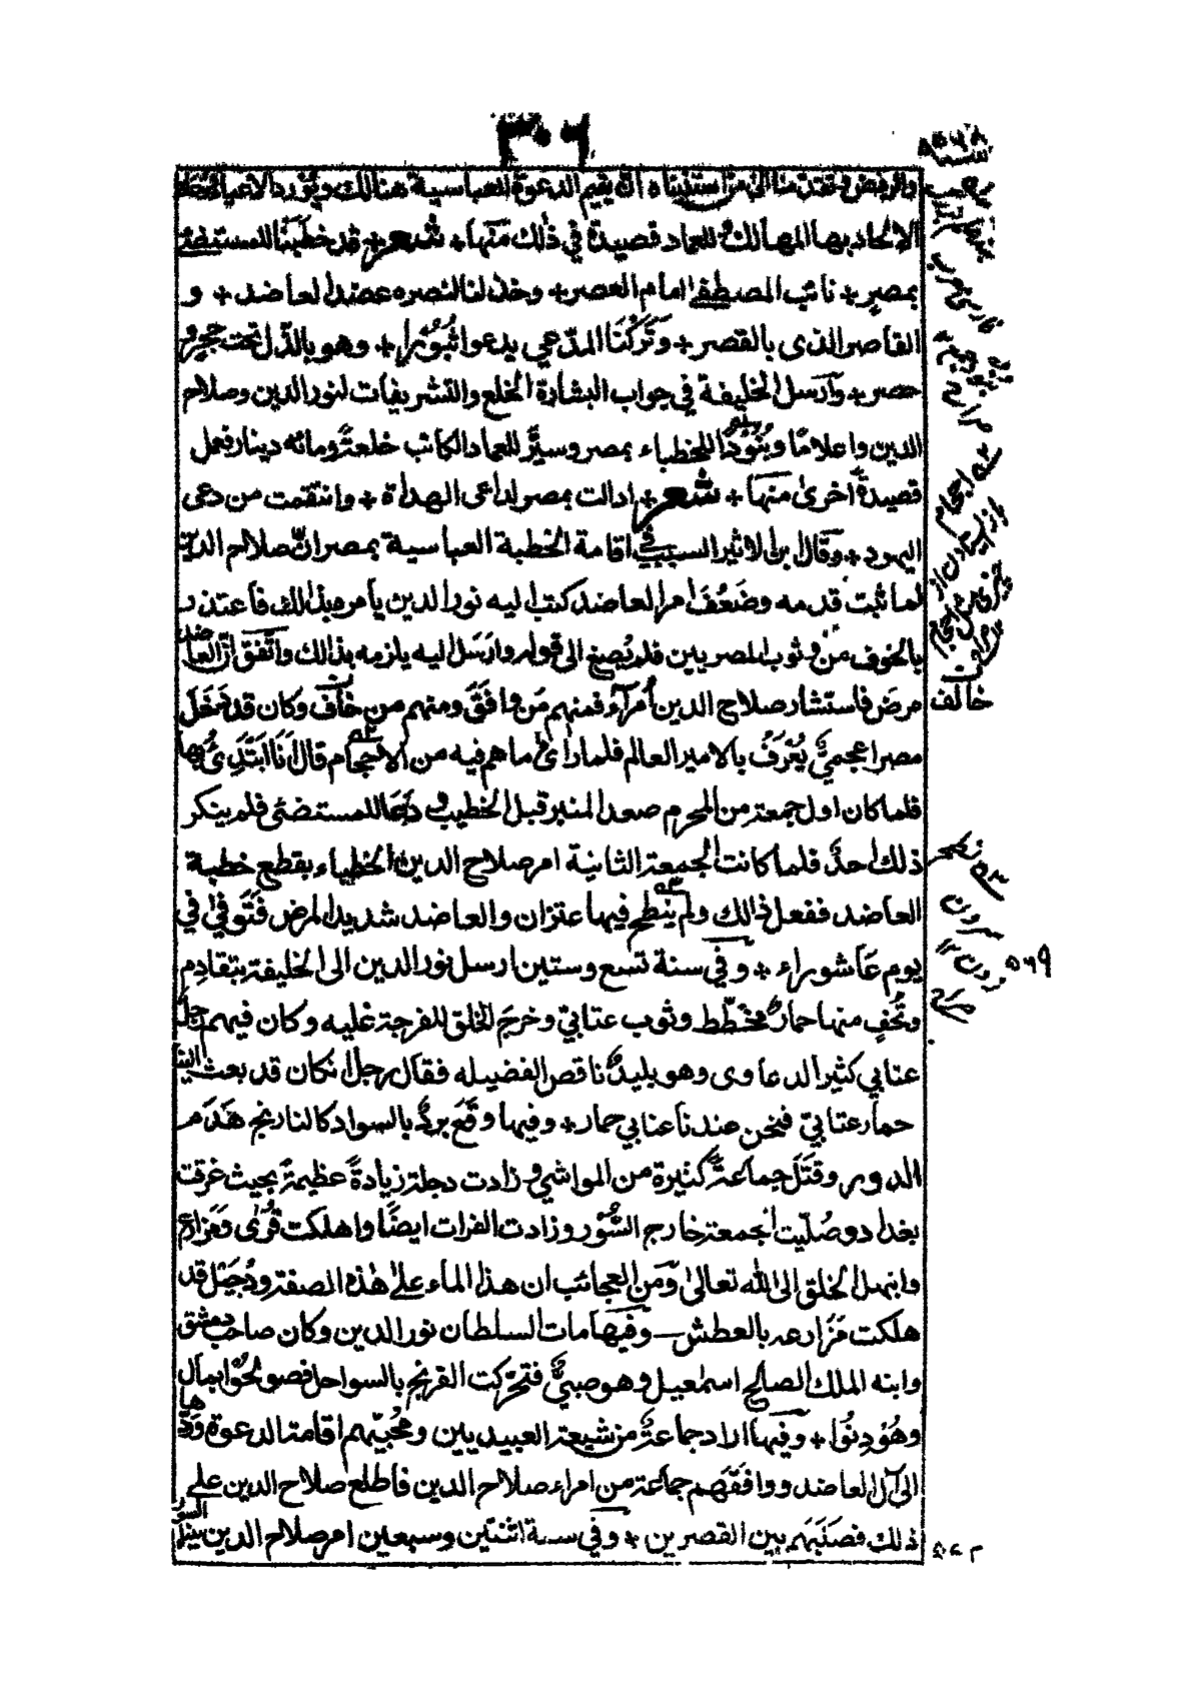 ٣٠٦
والرفض وتقدمنا الى من استنبناه ان يقيم الدعوة العباسية هنالك ويورد الادعياء ودعاة
الالحاد بها المهالك وللعماد قصيدة في ذلك منها + شعر + قد خطبنا للمستضئ
بمصر + نائب المصطفى امام العصر + وخذلنا لنصره عضد العاضد + و
القاصر الذى بالقصر + وَتَرَكْنَا المدّعي يدعو اثُبُوْرا + وهو بالذّل تحت حجر و
حصر + وارسل الخليفة في جواب البشارة الخلع والتشريفات لنور الدين وصلاح
الدين واعلامًا وبُنُودًا للخطباء بمصر وسيَّر للعماد الكاتب خلعةً ومائه دينار فعمل
قصيدةً اخرىٰ منها + شعر + ادالت بمصر لداعى الهداة + وانتقمت من دعى
اليهود + وقال ابن الاثير السبب في اقامة الخطبة العباسية بمصر انّ صلاح الدين
لما ثبت قدمه وضَعُفَ امر العاضد كتب اليه نور الدين يأمره بذلك فاعتذر
بالخوف من وثوب المصريين فلم يُصغ الى قوله وارسل اليه يلزمه بذالك واتّفق انّ العاضد
مرض فاستشار صلاح الدين اُمرآءه فمنهم مَن وافَقَ ومنهم من خاف وكان قد دَخَلَ
مصر اعجميٌّ يُعْرَفُ بالامير العالم فلما رائ ما هم فيه من الاحجام قال اَنَا اَبْتَدِئُ بها
فلما كان اول جمعة من المحرم صعد المنبر قبل الخطيب و دعا للمستضئ فلم ينكر
ذلك احدٌ فلما كانت الجمعة الثانية امر صلاح الدين الخطباء بقطع خطبة
العاضد ففعل ذالك ولم ينطح فيها عنزان والعاضد شديد المرض فتوفي في
يوم عاشوراء + وفي سنة تسع وستين ارسل نور الدين الى الخليفة بتقادِم
وتُحَفٍ منها حمارٌ مخطّط وثوب عتابيّ وخرج الخلق للفرجة عليه وكان فيهم رجلٌ
عتابي كثير الدعاوى وهو بليدٌ ناقص الفضيله فقال رجل انكان قد بعث الينا
حمار عتابيّ فنحن عندنا عتابي حمار + وفيها وقَعَ بردٌ بالسواد كالنارنج هَدَمَ
الدور وقتَلَ جماعةً كثيرة من المواشي و زادت دجلة زيادةً عظيمةً بحيث غرقت
بغداد وصُلّيت الجمعة خارج السُّوْر وزادت الفرات ايضًا واهلكت قُرًى ومَزارع
وابتهل الخلق الى اللّه تعالىٰ ومن العجائب ان هذا الماء علىٰ هٰذه الصفة ودُجَيل قد
هلكت مَزَارعه بالعطش وفيها مات السلطان نور الدين وكان صاحب دمشق
وابنه الملك الصالح اسمٰعيل وهو صبيٌّ فتحرّكت الفرنج بالسواحل فصولحوا بمال
وهُوْدِنُوا + وفيها اراد جماعةٌ من شيعة العبيديين ومُحبّيهم اقامة الدعوة وَرَدَّها
الى آل العاضد ووافَقَهم جماعة من امراء صلاح الدين فاطلع صلاح الدين على
ذلك فصَلَبَهم بين القصرين + وفي سنة اثنتين وسبعين امر صلاح الدين ببناء السور
خالف
٥٦٩